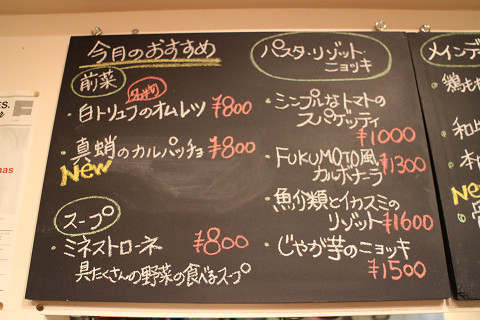 今月のおすすめ
前菜
名物
白トリュフのオムレツ ¥800
真蛸のカルパッチョ ¥800
New
スープ
ミネストローネ ¥800
具たくさんの野菜の食べるスープ
パスタ・リゾット・
ニョッキ
シンプルなトマトの
スパゲッティ
¥1000
FUKUMOTO風
カルボナーラ ¥1300
魚介類とイカスミの
リゾット ¥1600
じゃが芋のニョッキ
¥1500
メインデ
鶏もも
和牛
New